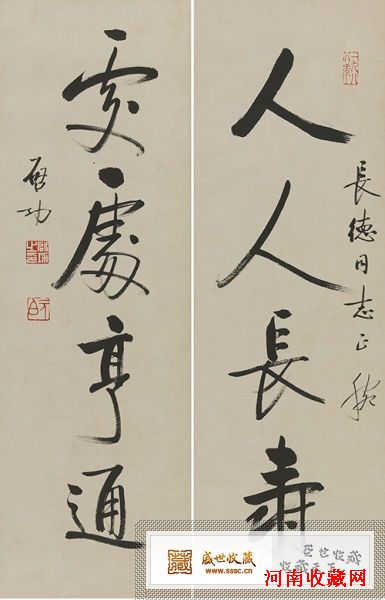 人人長壽
長德同志正腕
處處亨通
啟功
元白
藏
盛世收藏
www.sssc.cn
盛世收藏
收藏天下
河南收藏网